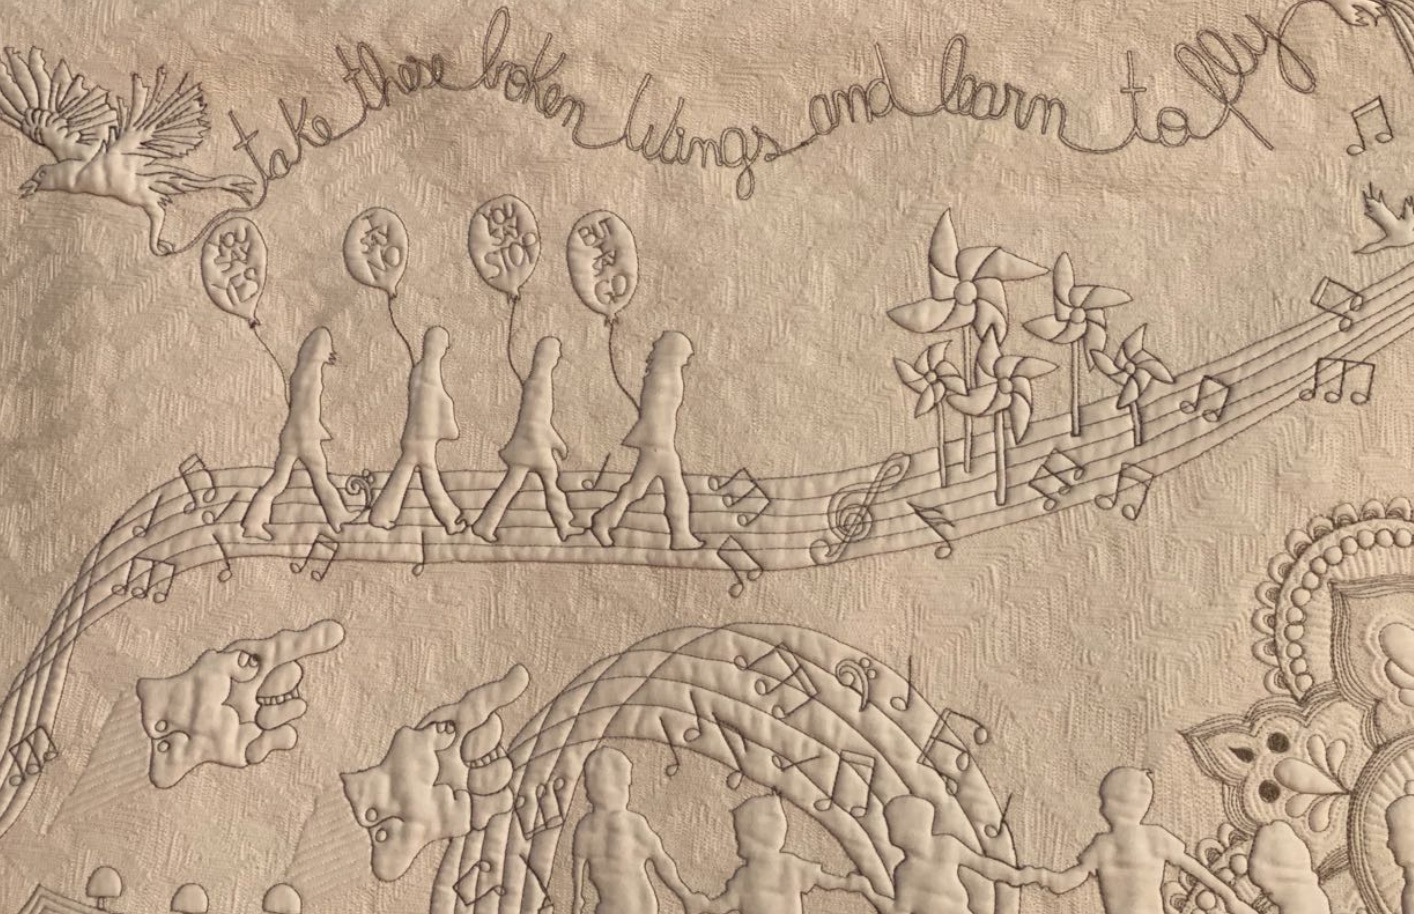 take these broken Wings and learn to fly
YOU
SAY
YES
I SAY
NO
YOU
SAY
STOP
BUT
I SAY
GO